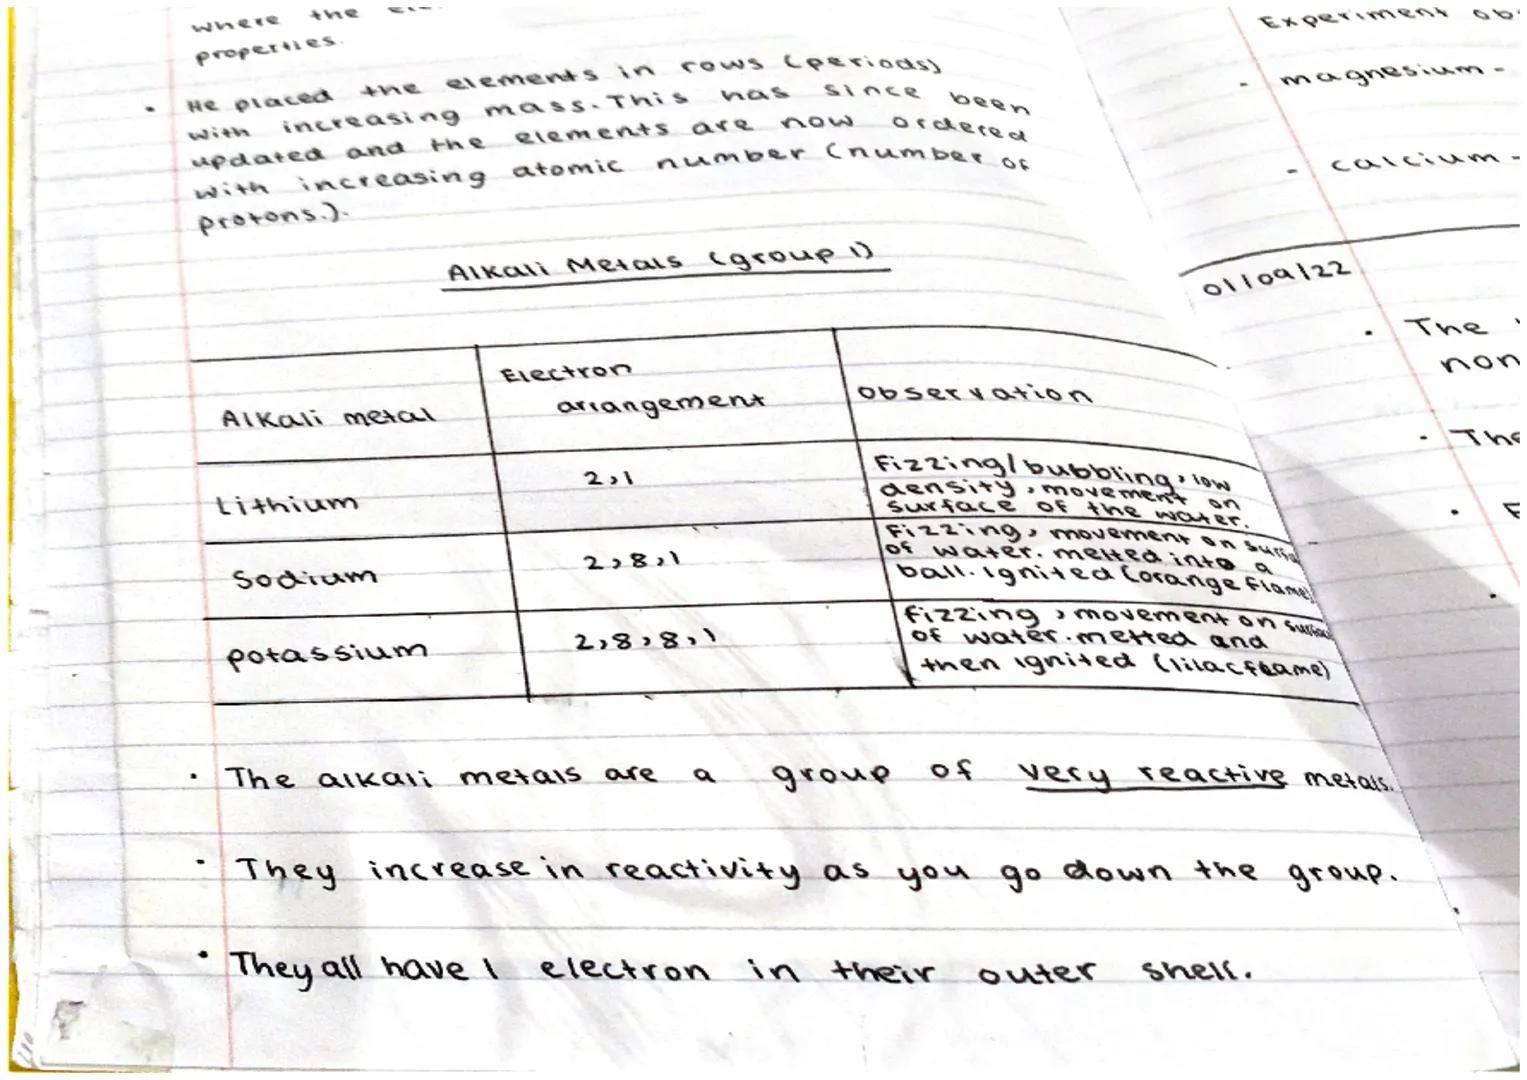 where the
properties.
• He placed the elements in rows (periods)
with increasing mass. This has since been
updated and the elements are now ordered
with increasing atomic number (number of
protons.).
Alkali Metals (group 1)
Alkali metal
Electron
arrangement
observation
Lithium
2,1
Fizzing/bubbling, low
density, movement on
surface of the water.
Sodium
2,8,1
Fizzing, movement on surfa
of water. melted into a
ball. ignited (orange flame)
potassium
2,8,8,1
fizzing, movement on surfac
of water. melted and
then ignited (lilac flame)
• The alkali metals are a group of very reactive metals.
• They increase in reactivity as you go down the group.
• They all have 1 electron in their outer shell.
Experiment ob
- magnesium -
- calcium -
01/09/22
• The
non
• The